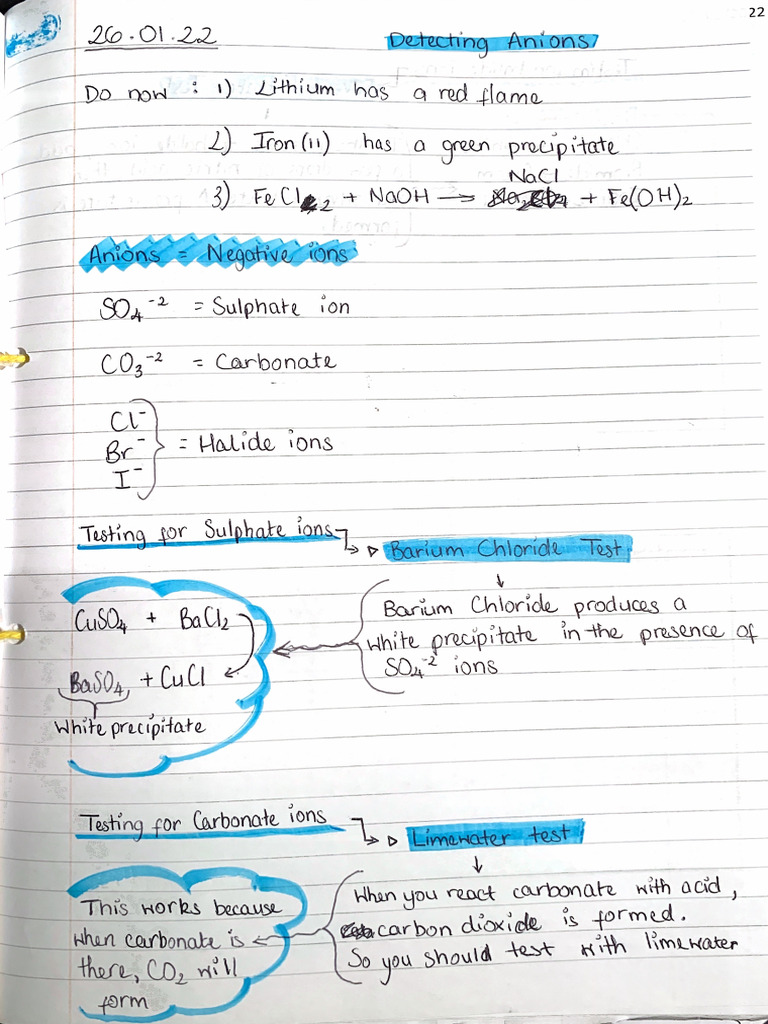 22
26.01.22
Detecting Anions
Do now : 1) Lithium has a red flame
2) Iron (11) has a green precipitate
NaCl
3) FeCl2 + NaOH → + Fe(OH)2
Anions = Negative ions
SO4⁻² = Sulphate ion
CO3⁻² = Carbonate
Cl⁻
Br⁻ = Halide ions
I⁻
Testing for Sulphate ions
Barium Chloride Test
CuSO4 + BaCl2
BaSO4 + CuCl
White precipitate
Barium Chloride produces a
white precipitate in the presence of
SO4⁻² ions
Testing for Carbonate ions
Limewater test
This works because
when carbonate is
there, CO2 will
form
When you react carbonate with acid,
carbon dioxide is formed.
So you should test with limewater